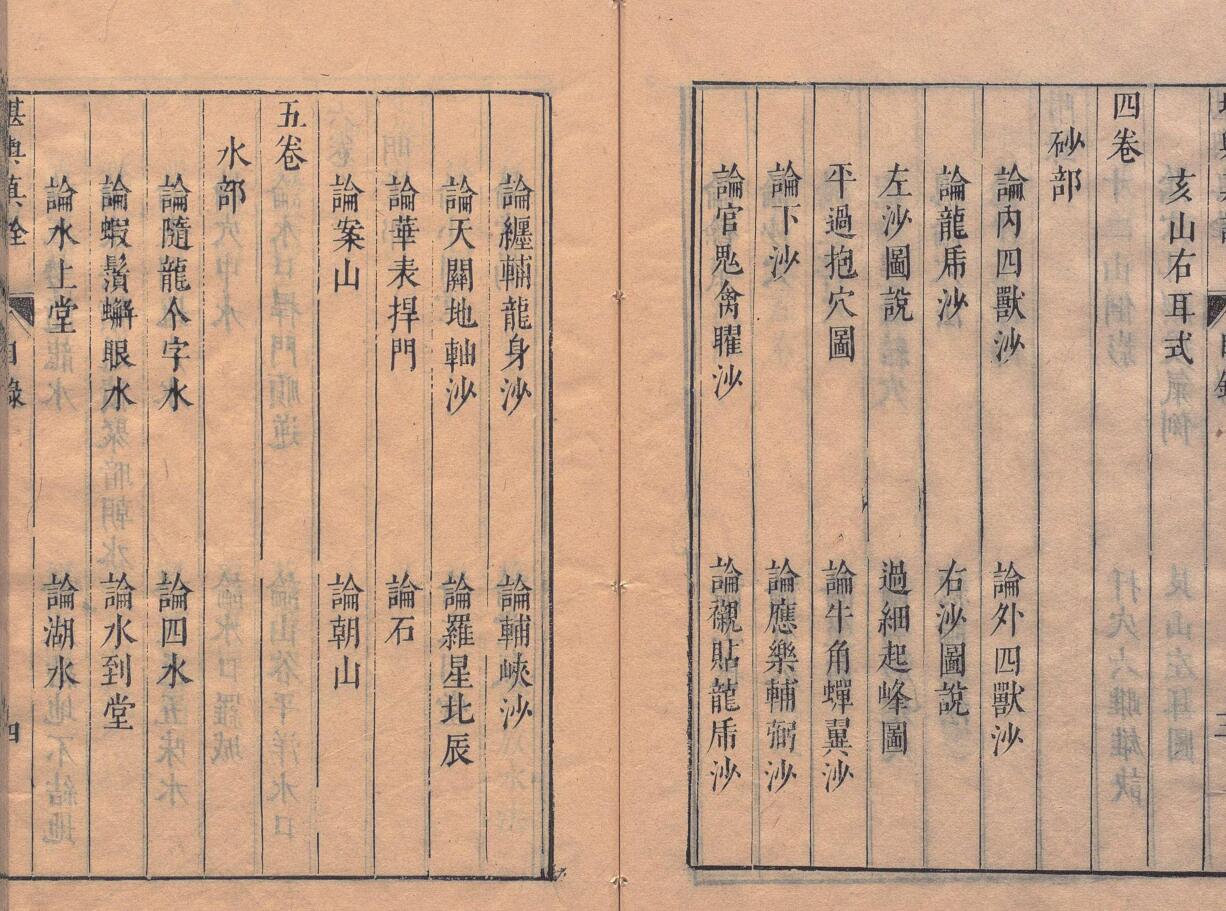 亥山右耳式
四卷
砂部
論內四獸沙
論外四獸沙
論龍乕沙
右沙圖說
左沙圖說
過細起峰圖
平過抱穴圖
論牛角蟬翼沙
論下沙
論應樂輔弼沙
論官鬼禽曜沙
論襯貼龍乕沙
論纏輔龍身沙
論輔峽沙
論天關地軸沙
論羅星北辰
論華表捍門
論石
論案山
論朝山
五卷
水部
論隨龍八字水
論四水
論蝦鬚蠏眼水
論水到堂
論水上堂
論湖水
堪輿真詮
目錄
四